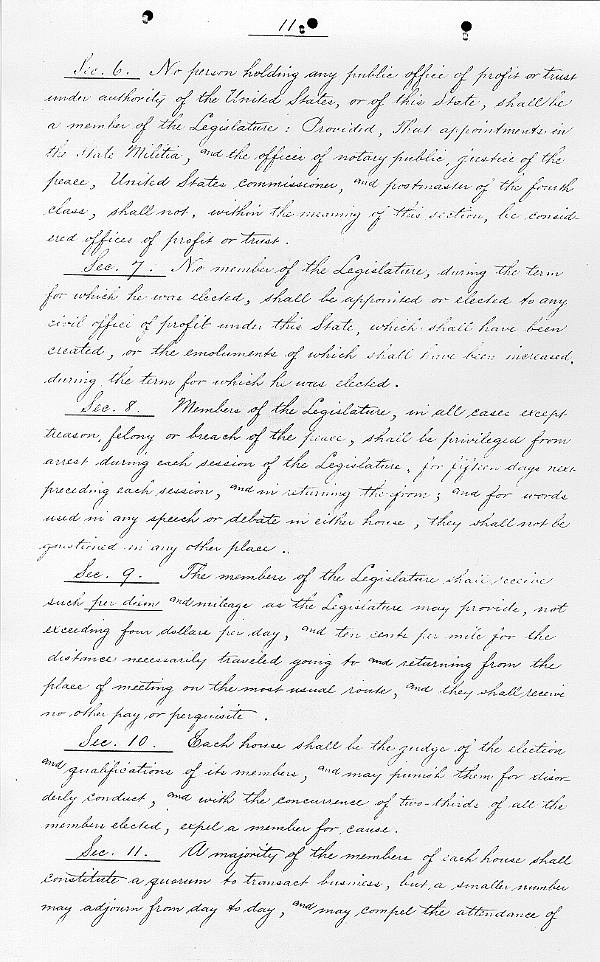 11.
Sec. 6. No person holding any public office of profit or trust
under authority of the United States, or of this State, shall be
a member of the Legislature: Provided, That appointments in
the State Militia, and the offices of notary public, justice of the
peace, United States commissioner, and postmaster of the fourth
class, shall not, within the meaning of this section, be consid-
ered offices of profit or trust.
Sec. 7. No member of the Legislature, during the term
for which he was elected, shall be appointed or elected to any
civil office of profit under this State, which shall have been
created, or the emoluments of which shall have been increased,
during the term for which he was elected.
Sec. 8. Members of the Legislature, in all cases except
treason, felony or breach of the peace, shall be privileged from
arrest during each session of the Legislature, for fifteen days next
preceding each session, and in returning therefrom; and for words
used in any speech or debate in either house, they shall not be
questioned in any other place.
Sec. 9. The members of the Legislature shall receive
such per diem and mileage as the Legislature may provide, not
exceeding four dollars per day, and ten cents per mile for the
distance necessarily traveled going to and returning from the
place of meeting on the most usual route, and they shall receive
no other pay or perquisite.
Sec. 10. Each house shall be the judge of the election
and qualifications of its members, and may punish them for disor-
derly conduct, and with the concurrence of two-thirds of all the
members elected, expel a member for cause.
Sec. 11. A majority of the members of each house shall
constitute a quorum to transact business, but a smaller number
may adjourn from day to day, and may compel the attendance of